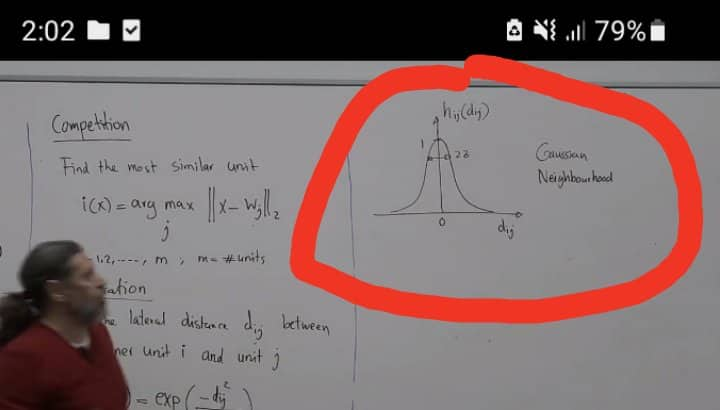 2:02
79%
Competition
Find the most similar unit
i(x) = arg max ||x - Wj||2
j
1,2,----, m , m = #units
lateral distance dij between
unit i and unit j
= exp(-dij²
hij(dij)
1
0
dij
Gaussian
Neighbourhood